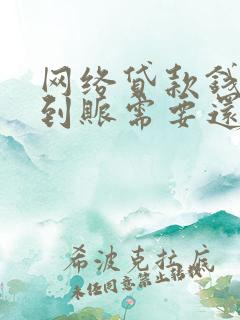 网络贷款钱
到账需要還
希波克拉底
未经同意禁止转载